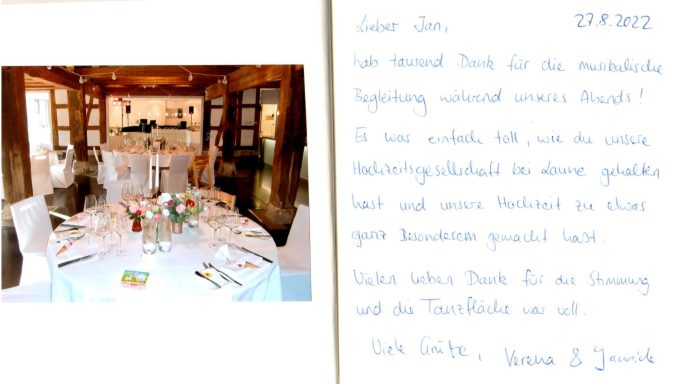 Lieber Jan,
27.8.2022
hab tausend Dank für die musikalische
Begleitung während unseres Abends!
Es was einfach toll, wie du unsere
Hochzeitsgesellschaft bei Laune gehalten
hast und unsere Hochzeit zu etwas
ganz Besonderem gemacht hast.
Vielen lieben Dank für die Stimmung
und die Tanzfläche was voll.
Viele Grüße, Verena & Jannick